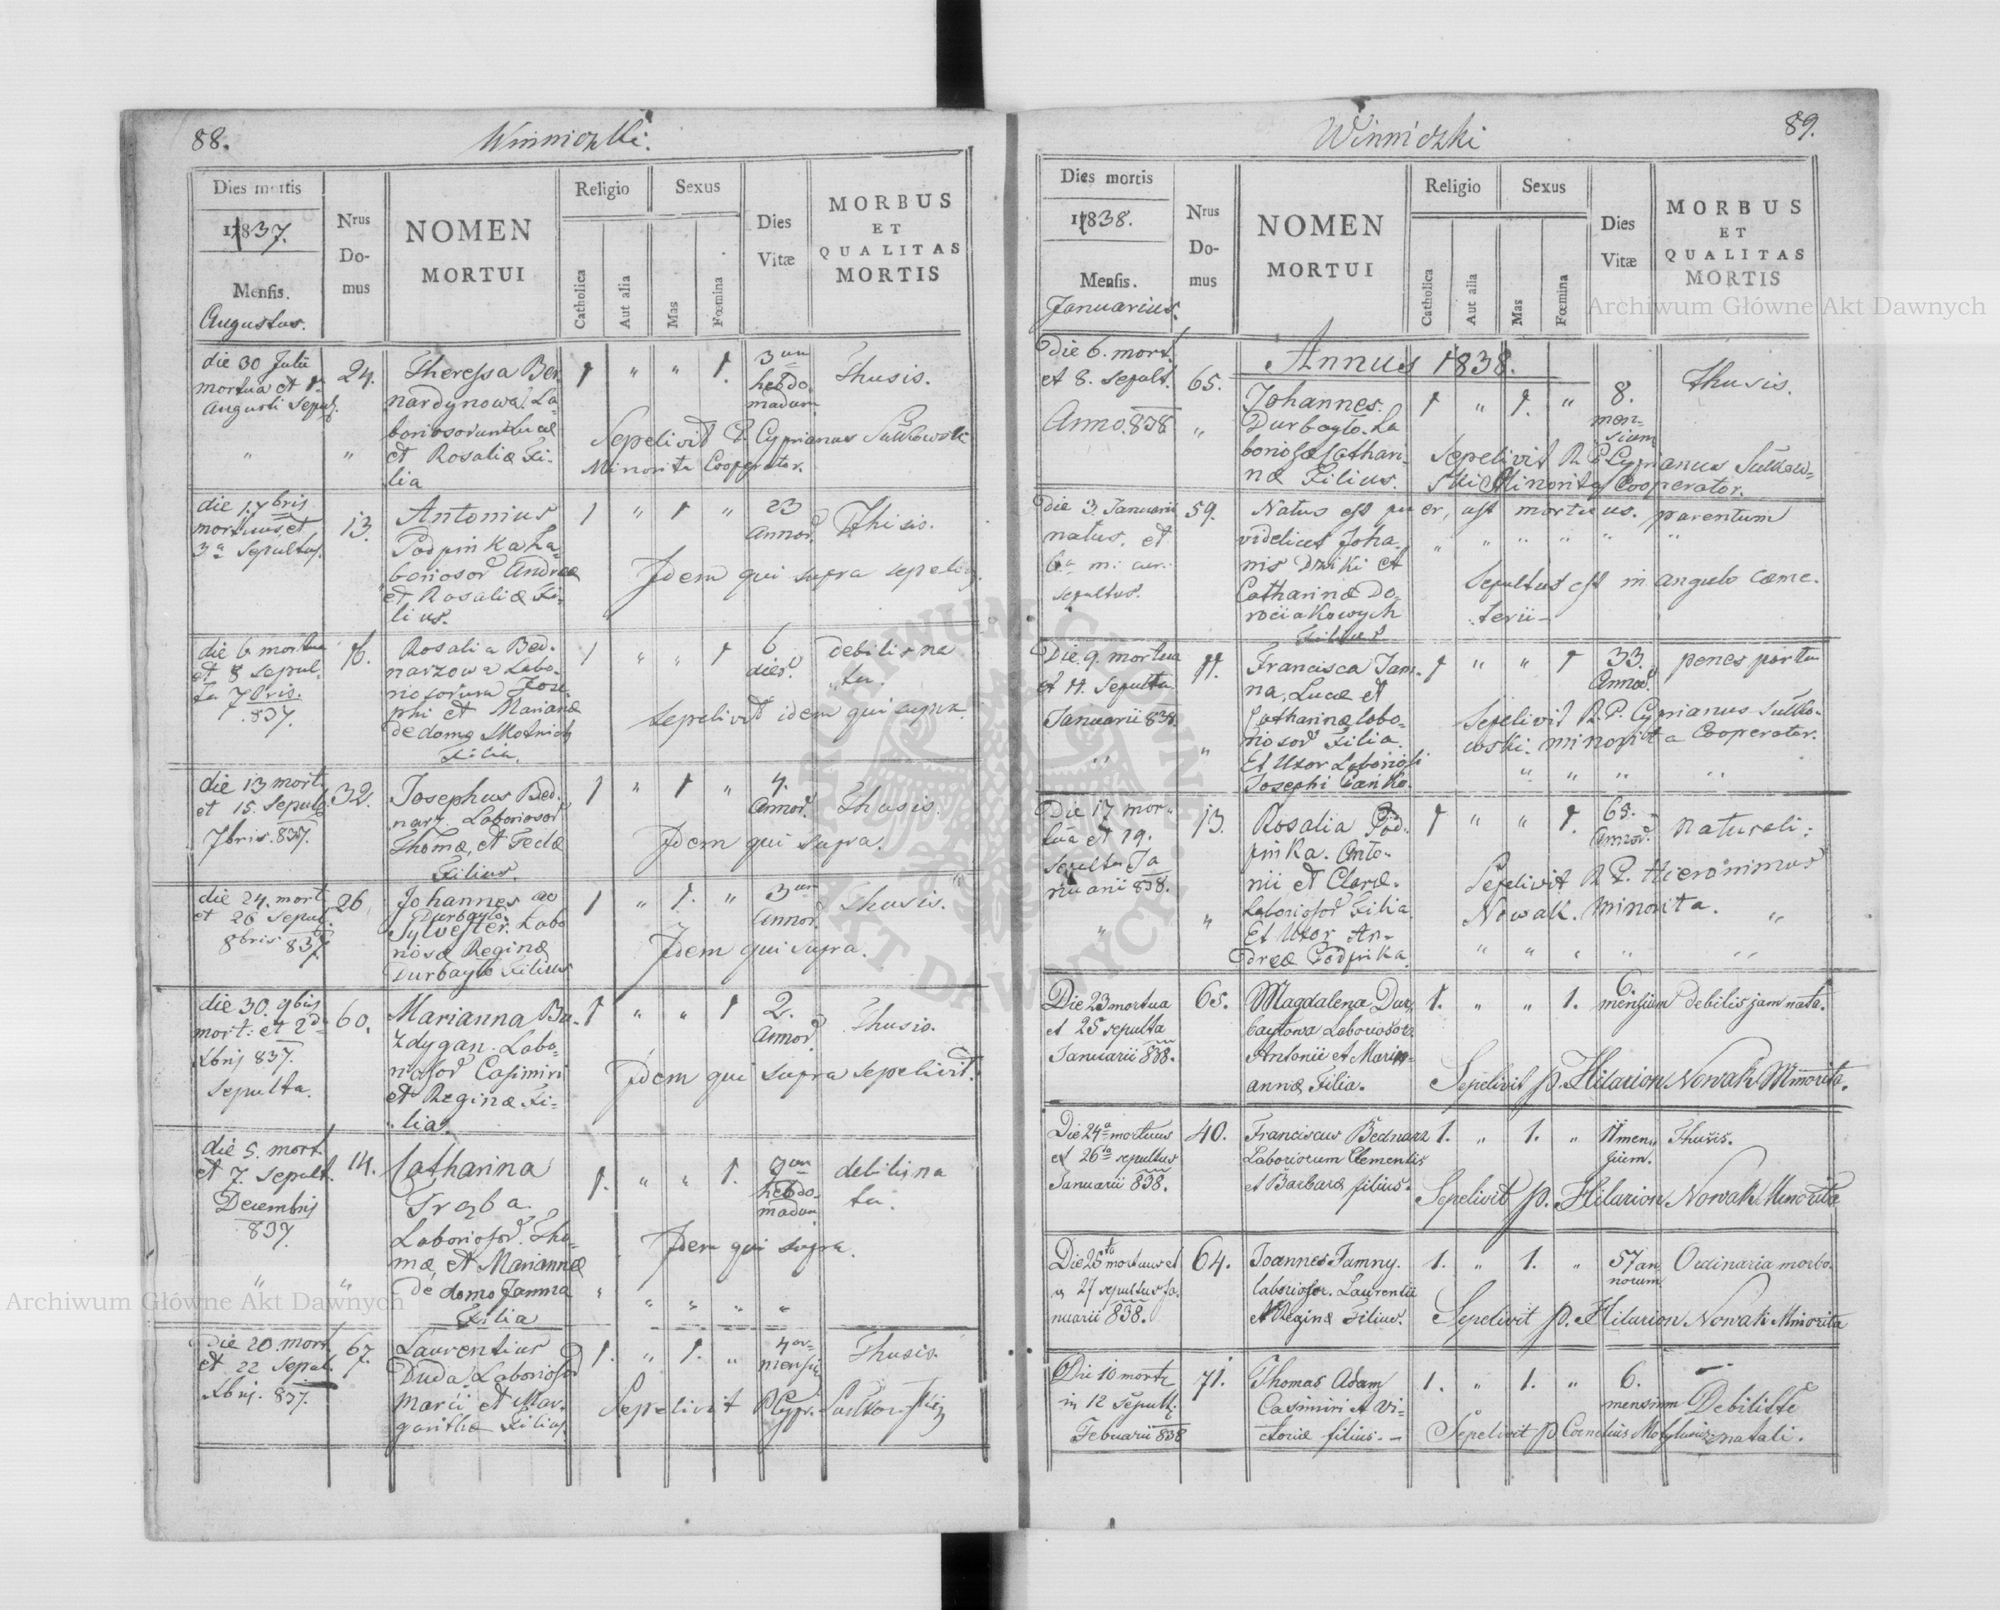 88.
Winniczki.
Dies mortis
1837.
Mensis.
Augustus.
Nrus
Do-
mus
NOMEN
MORTUI
Religio
Catholica
Aut alia
Sexus
Mas
Fœmina
Dies
Vitæ
MORBUS
ET
QUALITAS
MORTIS
die 30 Julii
mortua et 1.
Augusti Sepul.
24.
Theressa Ber
nardynowa La-
boriosorum
et Rosaliæ Fi-
lia
1 " " 1.
3um
hebdo
madum
Thusis.
Sepelivit P. Cyprianus Sulkowski
Minorita Cooperator.
die 1. 7bris
mortuus et
3a Sepultus.
13.
Antonius
Podpinka La-
boriosor Andreæ
et Rosaliæ Fi-
lius.
1 " 1 "
23
Annor.
Thisis.
Idem qui supra sepeliv.
die 6 mortua
et 8 sepul-
ta 7bris.
837.
16.
Rosalia Bed-
narzowa Labo-
riosorum Jose-
phi et Marianæ
de domo
Filia.
1 " " 1
6
dier.
debilis na
ta.
Sepelivit idem qui supra.
die 13 mort
et 15. Sepul
7bris. 837.
32.
Josephus Bed-
narz. Laboriosor
Thomæ, et Teclæ
Filius.
1 " 1 "
4.
Annor.
Thusis.
Idem qui supra.
die 24. mort
et 26 Sepul.
8bris 837.
26
Johannes ac
Durbayło.
Sylvester. Labo
riosæ Reginæ
Durbayło Filius
1 " 1. "
3um
Annor.
Thusis.
Idem qui supra.
die 30. 9bris
mort: et 2da
Xbris 837.
Sepulta.
60.
Marianna Bu-
zdygan. Labo-
riosor Casimiri
et Reginæ Fi-
lia.
1 " " 1
2.
Annor.
Thusis.
Idem qui supra sepelivit.
die 5. mort
et 7. Sepult.
Decembris
837.
14.
Catharina
Trąba.
Laboriosor. Tho-
mæ, et Mariannæ
de domo Jamna
Filia
1. " " 1.
3um
hebdo-
madum
debilis na
ta.
Idem qui supra.
die 20. mort
et 22 Sepul.
Xbris. 837.
67.
Laurentius
Duda, Laboriosor
Marci et Mar-
garithæ Filius.
1. " 1. "
4or
mensium
Thusis.
Sepelivit P. Cypr. Sulkowski
89.
Winniczki
Dies mortis
1838.
Mensis.
Januarius.
Nrus
Do-
mus
NOMEN
MORTUI
Religio
Catholica
Aut alia
Sexus
Mas
Fœmina
Dies
Vitæ
MORBUS
ET
QUALITAS
MORTIS
Annus 1838.
Die 6. mort.
et 8. sepult.
Anno. 838
65.
Johannes.
Durbayło. La
boriosæ Cathari-
næ Filius.
1 " 1. "
8.
men-
sium
thusis.
Sepelivit R. P. Cyprianus Sulkow-
ski Minorita Cooperator.
Die 3. Januarii
natus. et
6a m: cur:
sepultus.
59.
Natus est puer, ast mortuus. parentum
videlicet Joha-
nis Dziki et
Catharinæ Do-
rociakowych
Filius
Sepultus est in angulo cœme-
terii-
Die 9. mortua
et 11. Sepulta
Januarii 838.
11.
Francisca Jam-
na, Lucæ et
Catharinæ labo-
riosor Filia.
Et Uxor Laboriosi
Josephi Cańka.
1 " " 1
33.
Annor.
penes partu
Sepelivit R. P. Cyprianus Sulko-
wski. minorita Cooperator.
Die 17 mor-
tua et 19.
sepulta Ja
nuarii 838.
13.
Rosalia Pod-
pinka. Anto-
nii et Claræ
Laboriosor Filia.
Et Uxor An-
dreæ Podpinka.
1 " " 1.
65.
Annor.
Naturali.
Sepelivit R. P. Hieronimus
Nowak. Minorita.
Die 23 mortua
et 25 sepulta
Januarii 838.
65.
Magdalena Dur-
bayłowa Laboriosor
Antonii et Mari-
annæ Filia.
1. " " 1.
6
mensium
debilis jam nata.
Sepelivit p. Hilarion Nowak Minorita.
Die 24a mortuus
et 26ta sepultus
Januarii 838.
40.
Franciscus Bednarz
Laboriorum Clementis
et Barbaræ filius.
1. " 1. "
11 men-
sium.
Thusis.
Sepelivit p. Hilarion Nowak Minorita
Die 25to mortuus et
27 sepultus Ja-
nuarii 838.
64.
Joannes Jamny.
laboriosor. Laurentii
et Reginæ Filius.
1. " 1. "
57 an
norum
Ordinaria morbo.
Sepelivit p. Hilarion Nowak Minorita
Die 10 mort
in 12 Sepult
Februarii 838
71.
Thomas Adam
Casimiri et Vi-
ctoriæ filius.-
1. " 1. "
6.
mensium
Debilitate
natali.
Sepelivit p Cornelius
Archiwum Główne Akt Dawnych
Archiwum Główne Akt Dawnych
ARCHIWUM GŁÓWNE AKT DAWNYCH